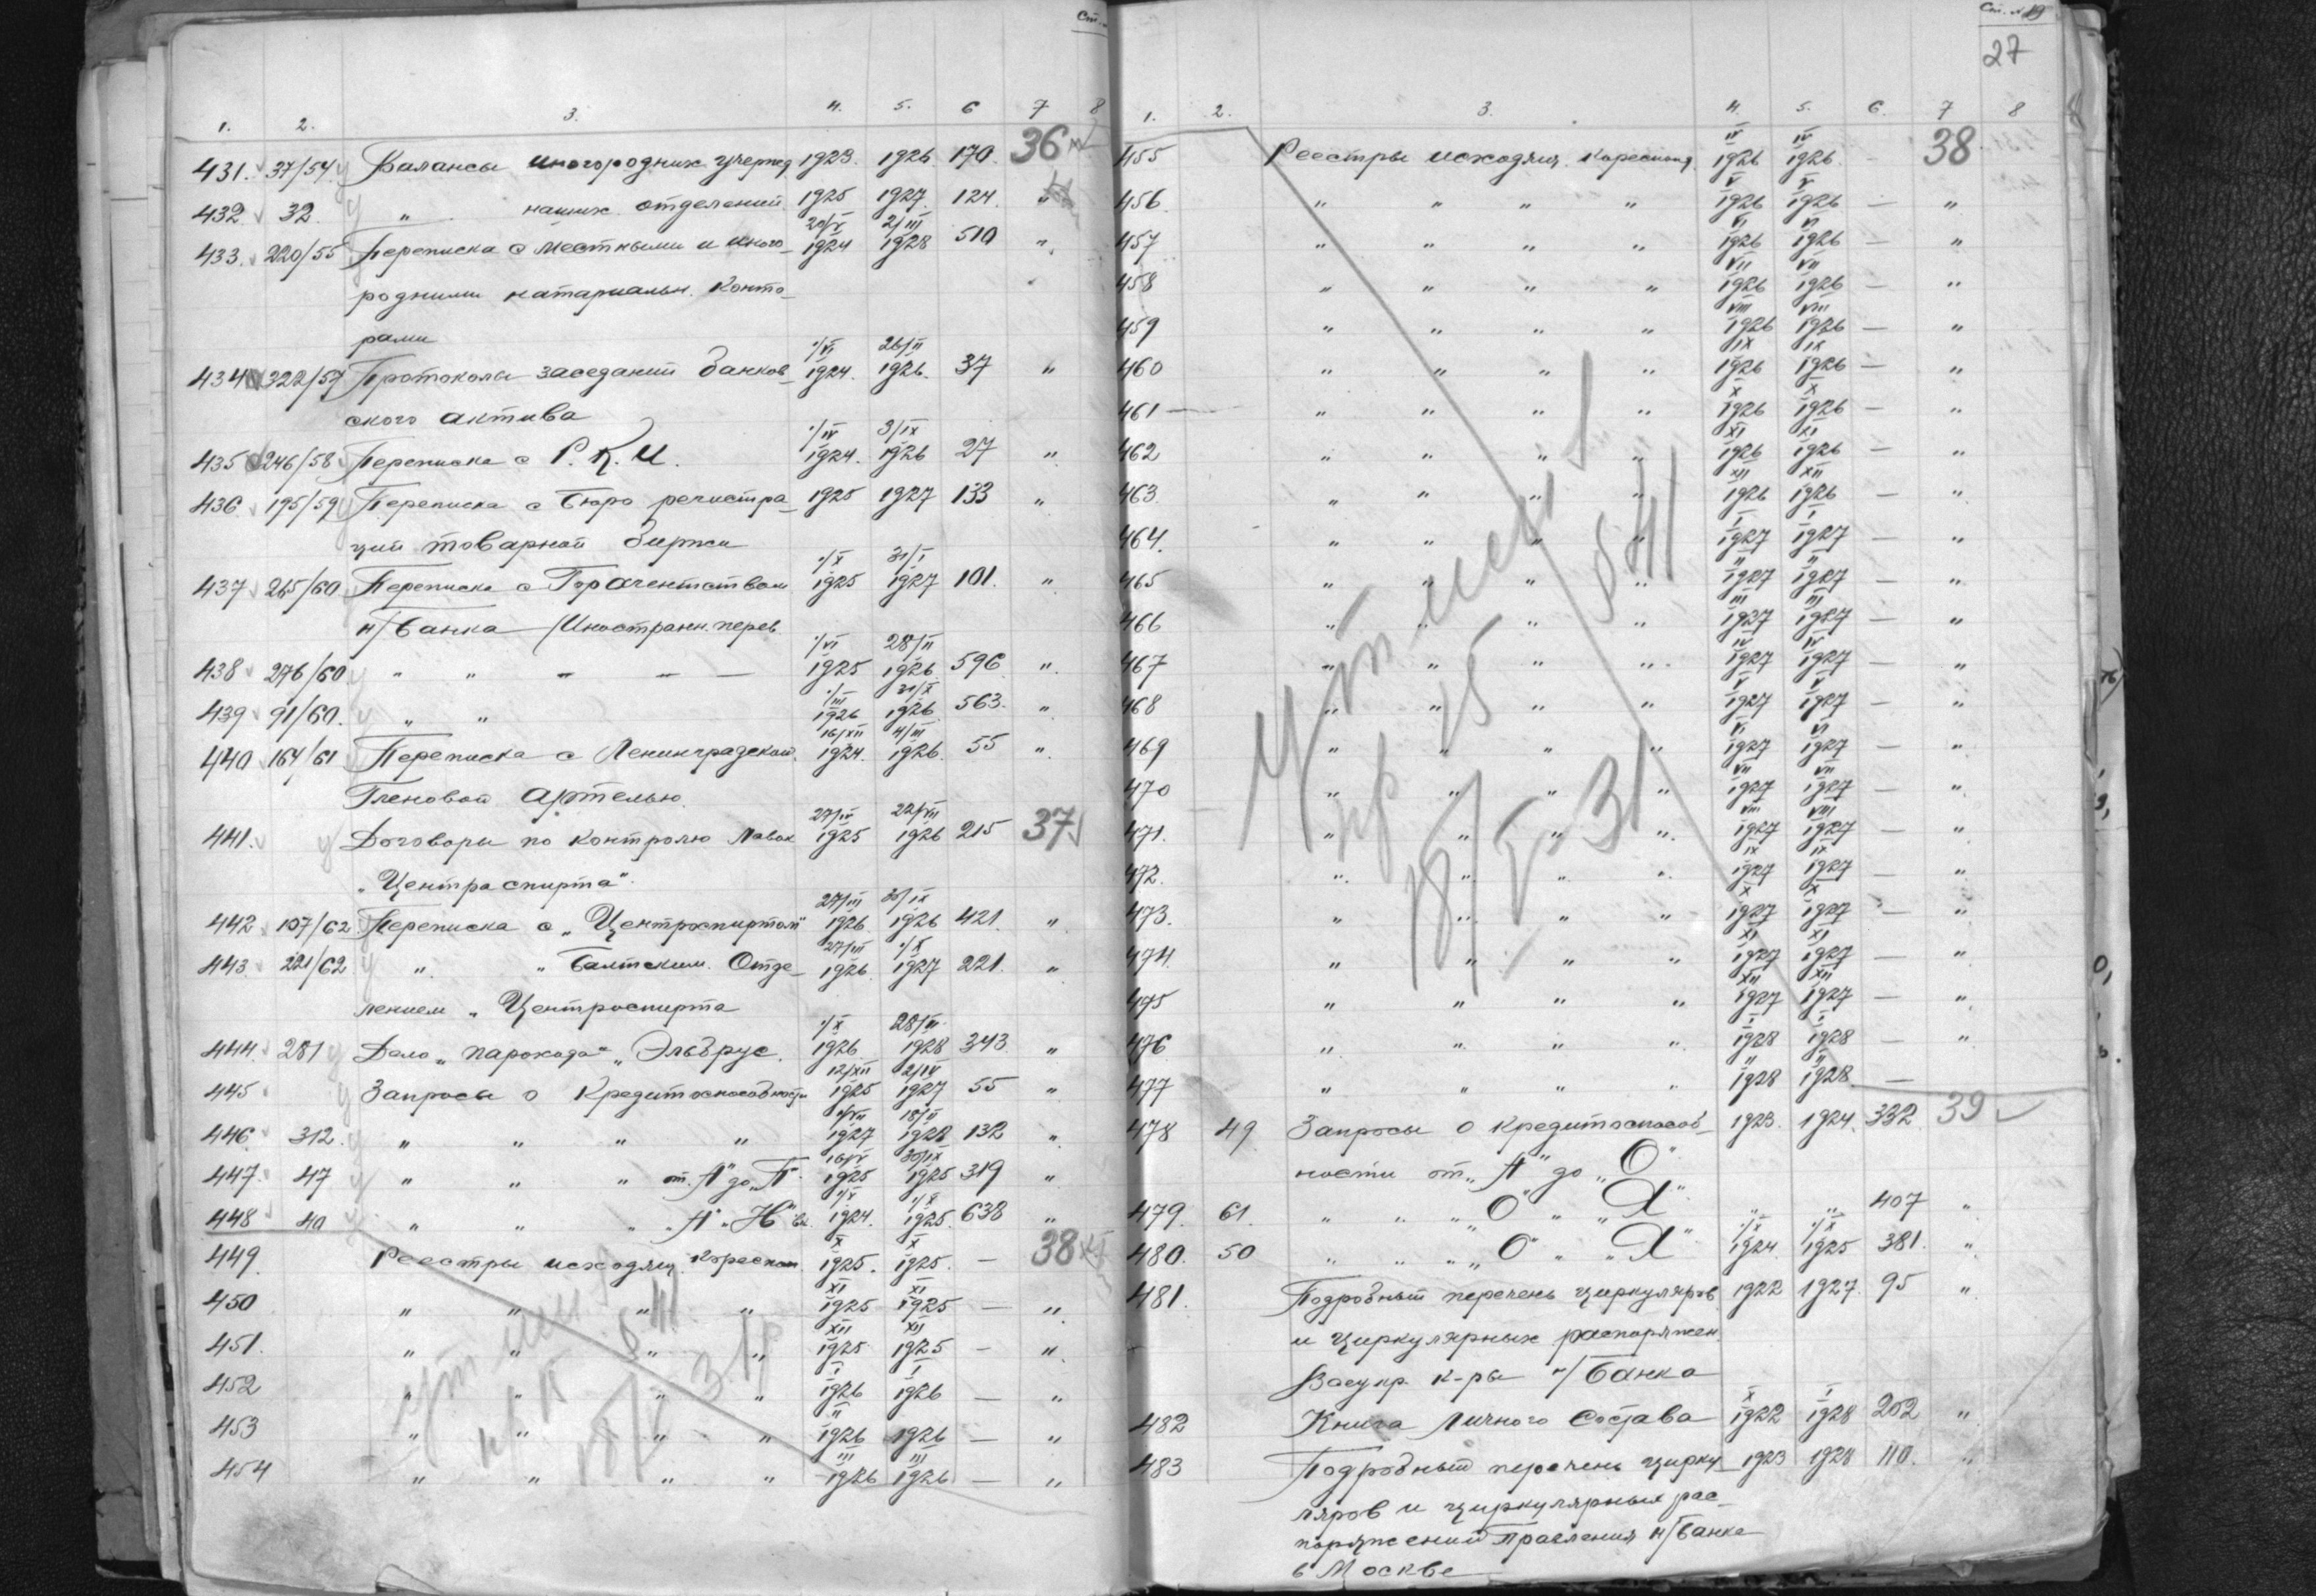 Ст.
1. 2. 3. 4. 5. 6 7 8
431. 37/54 Балансы иногородних учережд 1923. 1926 170. 36
432 32. " наших отделений 1925 1927. 124. "
20/V 2/III
433. 220/55 Переписка с местными и иного- 1924 1928 510 "
родними натариальн. Конто-
рами
1/VI 26/II
434 322/57 Протоколы заседаний банков- 1924. 1926. 37 "
ского актива
1/IV 3/IX
435 246/58 Переписка с Р.К.И. 1924. 1926 27 "
436. 195/59 Переписка с Бюро регистра- 1925 1927 133 "
ций товарной биржи
1/X 31/I
437 265/60 Переписка с Горагентством 1925 1927 101. "
н/Банка (Иностранн. перев
1/VI 28/II
438 276/60 " " - - - 1925 1926 596. "
1/III 31/X
439 91/60. " " 1926 1926 563. "
16/XII 4/III
440 164/61 Переписка с Ленинградской 1924. 1926. 55 "
Членовой Артелью
22/VII
441. Договоры по контролю лавок 1925 1926 215 37
"Центраспирта".
27/III 30/IX
442 107/62 Переписка с "Центроспиртом" 1926. 1926 421. "
27/III 1/X
443 221/62 " " Балтским. Отде- 1926. 1927 221. "
лением "Центроспирта
1/X 28/III
444. 281 Дело "парохода" "Эльбрус. 1926. 1928 343 "
12/XII 2/IV
445 Запросы о Кредитоспособности 1925 1927 55 "
1/VII 18/II
446 312. " " " " 1927 1928 132 "
16/V 30/IX
447. 47 " " " от "А" до "П". 1925 1925 319 "
1/X 1/X
448 40 " " " "А" "Н" вк. 1924. 1925. 638 "
X X
449. Реестры исходящ. Кореспон 1925. 1925. - 38
XI XI
450 " " " " 1925 1925 - "
XII XII
451. " " " " 1925 1925 - "
I I
452 " " " " 1926 1926 - "
II
453 " " " " 1926 1926 - "
III III
454 " " " " 1926 1926 - "
18/V 31
Ст. N 19
27
1. 2. 3. 4. 5. 6. 7 8
IV IV
455 Реестры исходящ. кореспонд. 1926 1926. 38
V V
456. " " " " 1926 1926 - "
VI VI
457 " " " " 1926 1926 - "
VII VII
458 " " " " 1926 1926 - "
VIII VIII
459 " " " " 1926 1926 - "
IX IX
460 " " " " 1926 1926 - "
X X
461 - " " " " 1926 1926 - "
XI XI
462 " " " " 1926 1926 - "
XII XII
463. " " " " 1926 1926 - "
I I
464. " " " " 1927 1927 - "
II II
465 " " " " 1927 1927 - "
III III
466 " " " " 1927 1927 - "
IV IV
467 " " " " 1927 1927 - "
V V
468 " " " " 1927 1927 - "
VI VI
469 " " " " 1927 1927 - "
VII VII
470 " " " " 1927 1927 - "
VIII VIII
471. " " " " 1927 1927 - "
IX IX
472. " " " " 1927 1927 - "
X X
473. " " " " 1927 1927 - "
XI XI
474. " " " " 1927 1927 - "
XII XII
475 " " " " 1927 1927 - "
I I
476 " " " " 1928 1928 - "
II II
477 " " " " 1928 1928 -
18/V-31
478 49. Запросы о кредитоспособ- 1923. 1924. 332. 39
ности от "А" до "О".
479. 61. " " " "О" " "Я". " " 407 "
1/X 1/X
480. 50 " " " "О" " "Я" 1924. 1925 381. "
481. Подробный перечень циркуляров 1922 1927. 95 "
и циркулярных распоряжен.
Всеукр. К-ры н/Банка
X I
482 Книга личного состава 1922 1928 202 "
483 Подробный перечень цирку- 1923 1928 110. "
ляров и циркулярных рас-
поряжений Правления н/Банка
в Москве